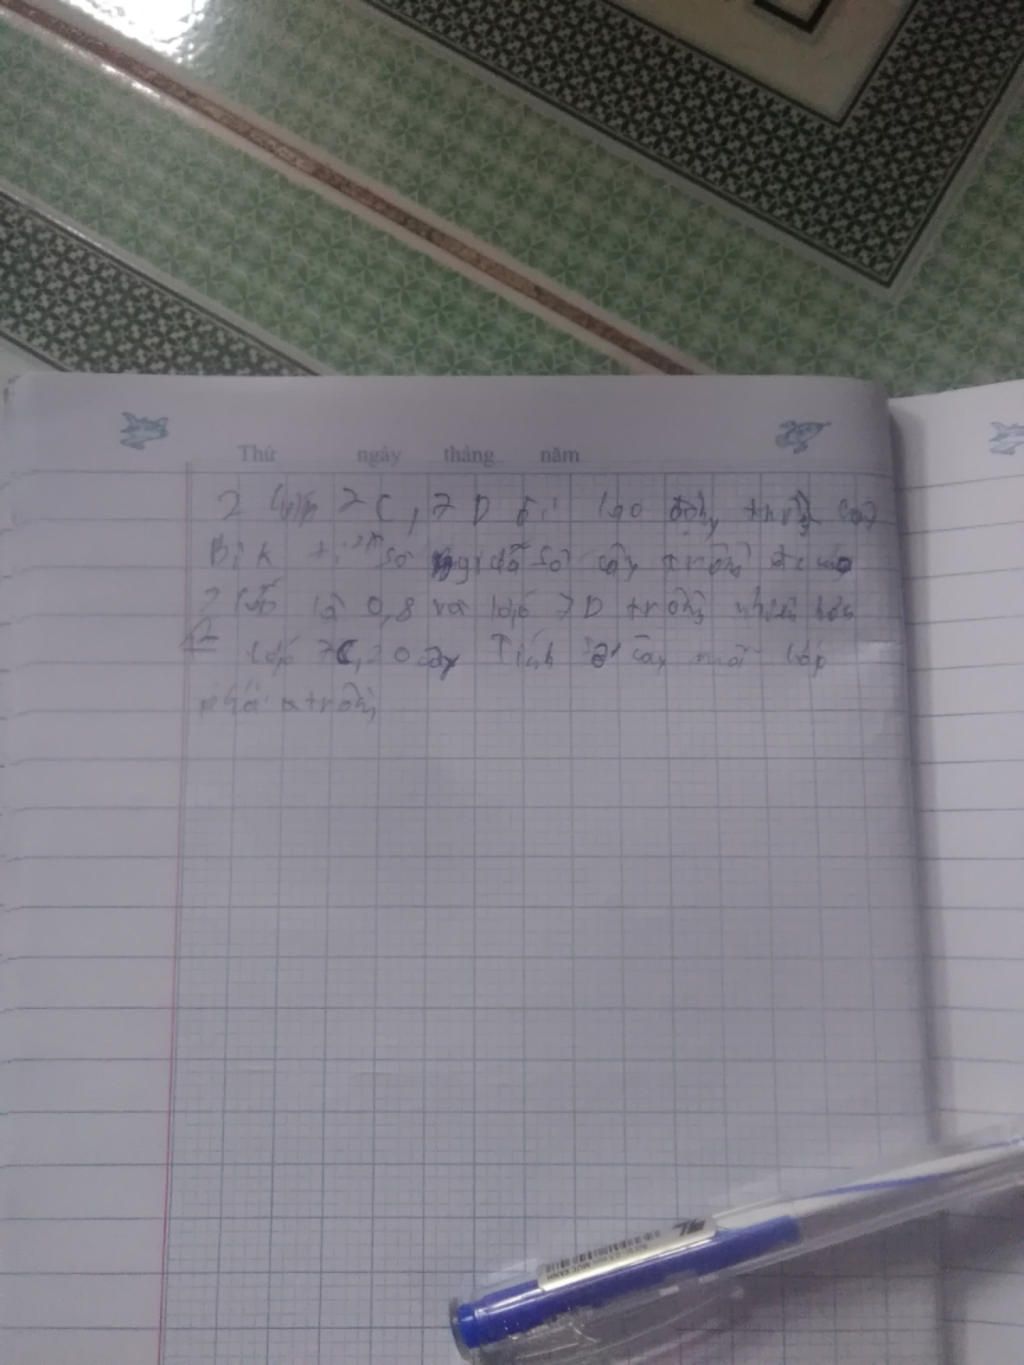 Thứ ngày tháng năm
2 lớp 7C, 7D đi lao động trồng cây
Bik số giữa số cây trồng
2 lớp là 0,8 và lớp 7D trồng nhiều hơn
lớp 7C, 20 cây Tính số cây mỗi lớp
phải trồng
TL